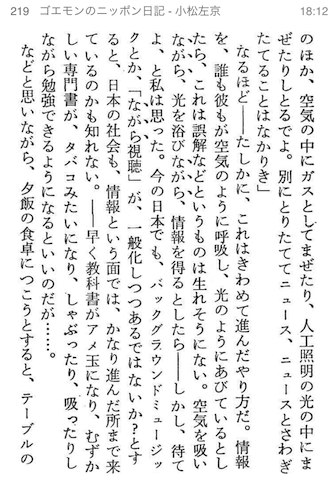 219 ゴエモンのニッポン日記 - 小松左京 18:12
のほか、空気の中にガスとしてまぜたり、人工照明の光の中にま
ぜたりしとるでよ。別にとりたててニュース、ニュースとさわぎ
たてることはなかりき」
なるほど――たしかに、これはきわめて進んだやり方だ。情報
を、誰も彼もが空気のように呼吸し、光のようにあびているとし
たら、これは誤解などというものは生れそうにない。空気を吸い
ながら、光を浴びながら、情報を得るとしたら――しかし、待て
よ、と私は思った。今の日本でも、バックグラウンドミュージッ
クとか、「ながら視聴」が、一般化しつつあるではないか？とす
ると、日本の社会も、情報という面では、かなり進んだ所まで来
ているのかも知れない。――早く教科書がアメ玉になり、むずか
しい専門書が、タバコみたいになり、しゃぶったり、吸ったりし
ながら勉強できるようになるといいのだが……。
などと思いながら、夕飯の食卓につこうとすると、テーブルの